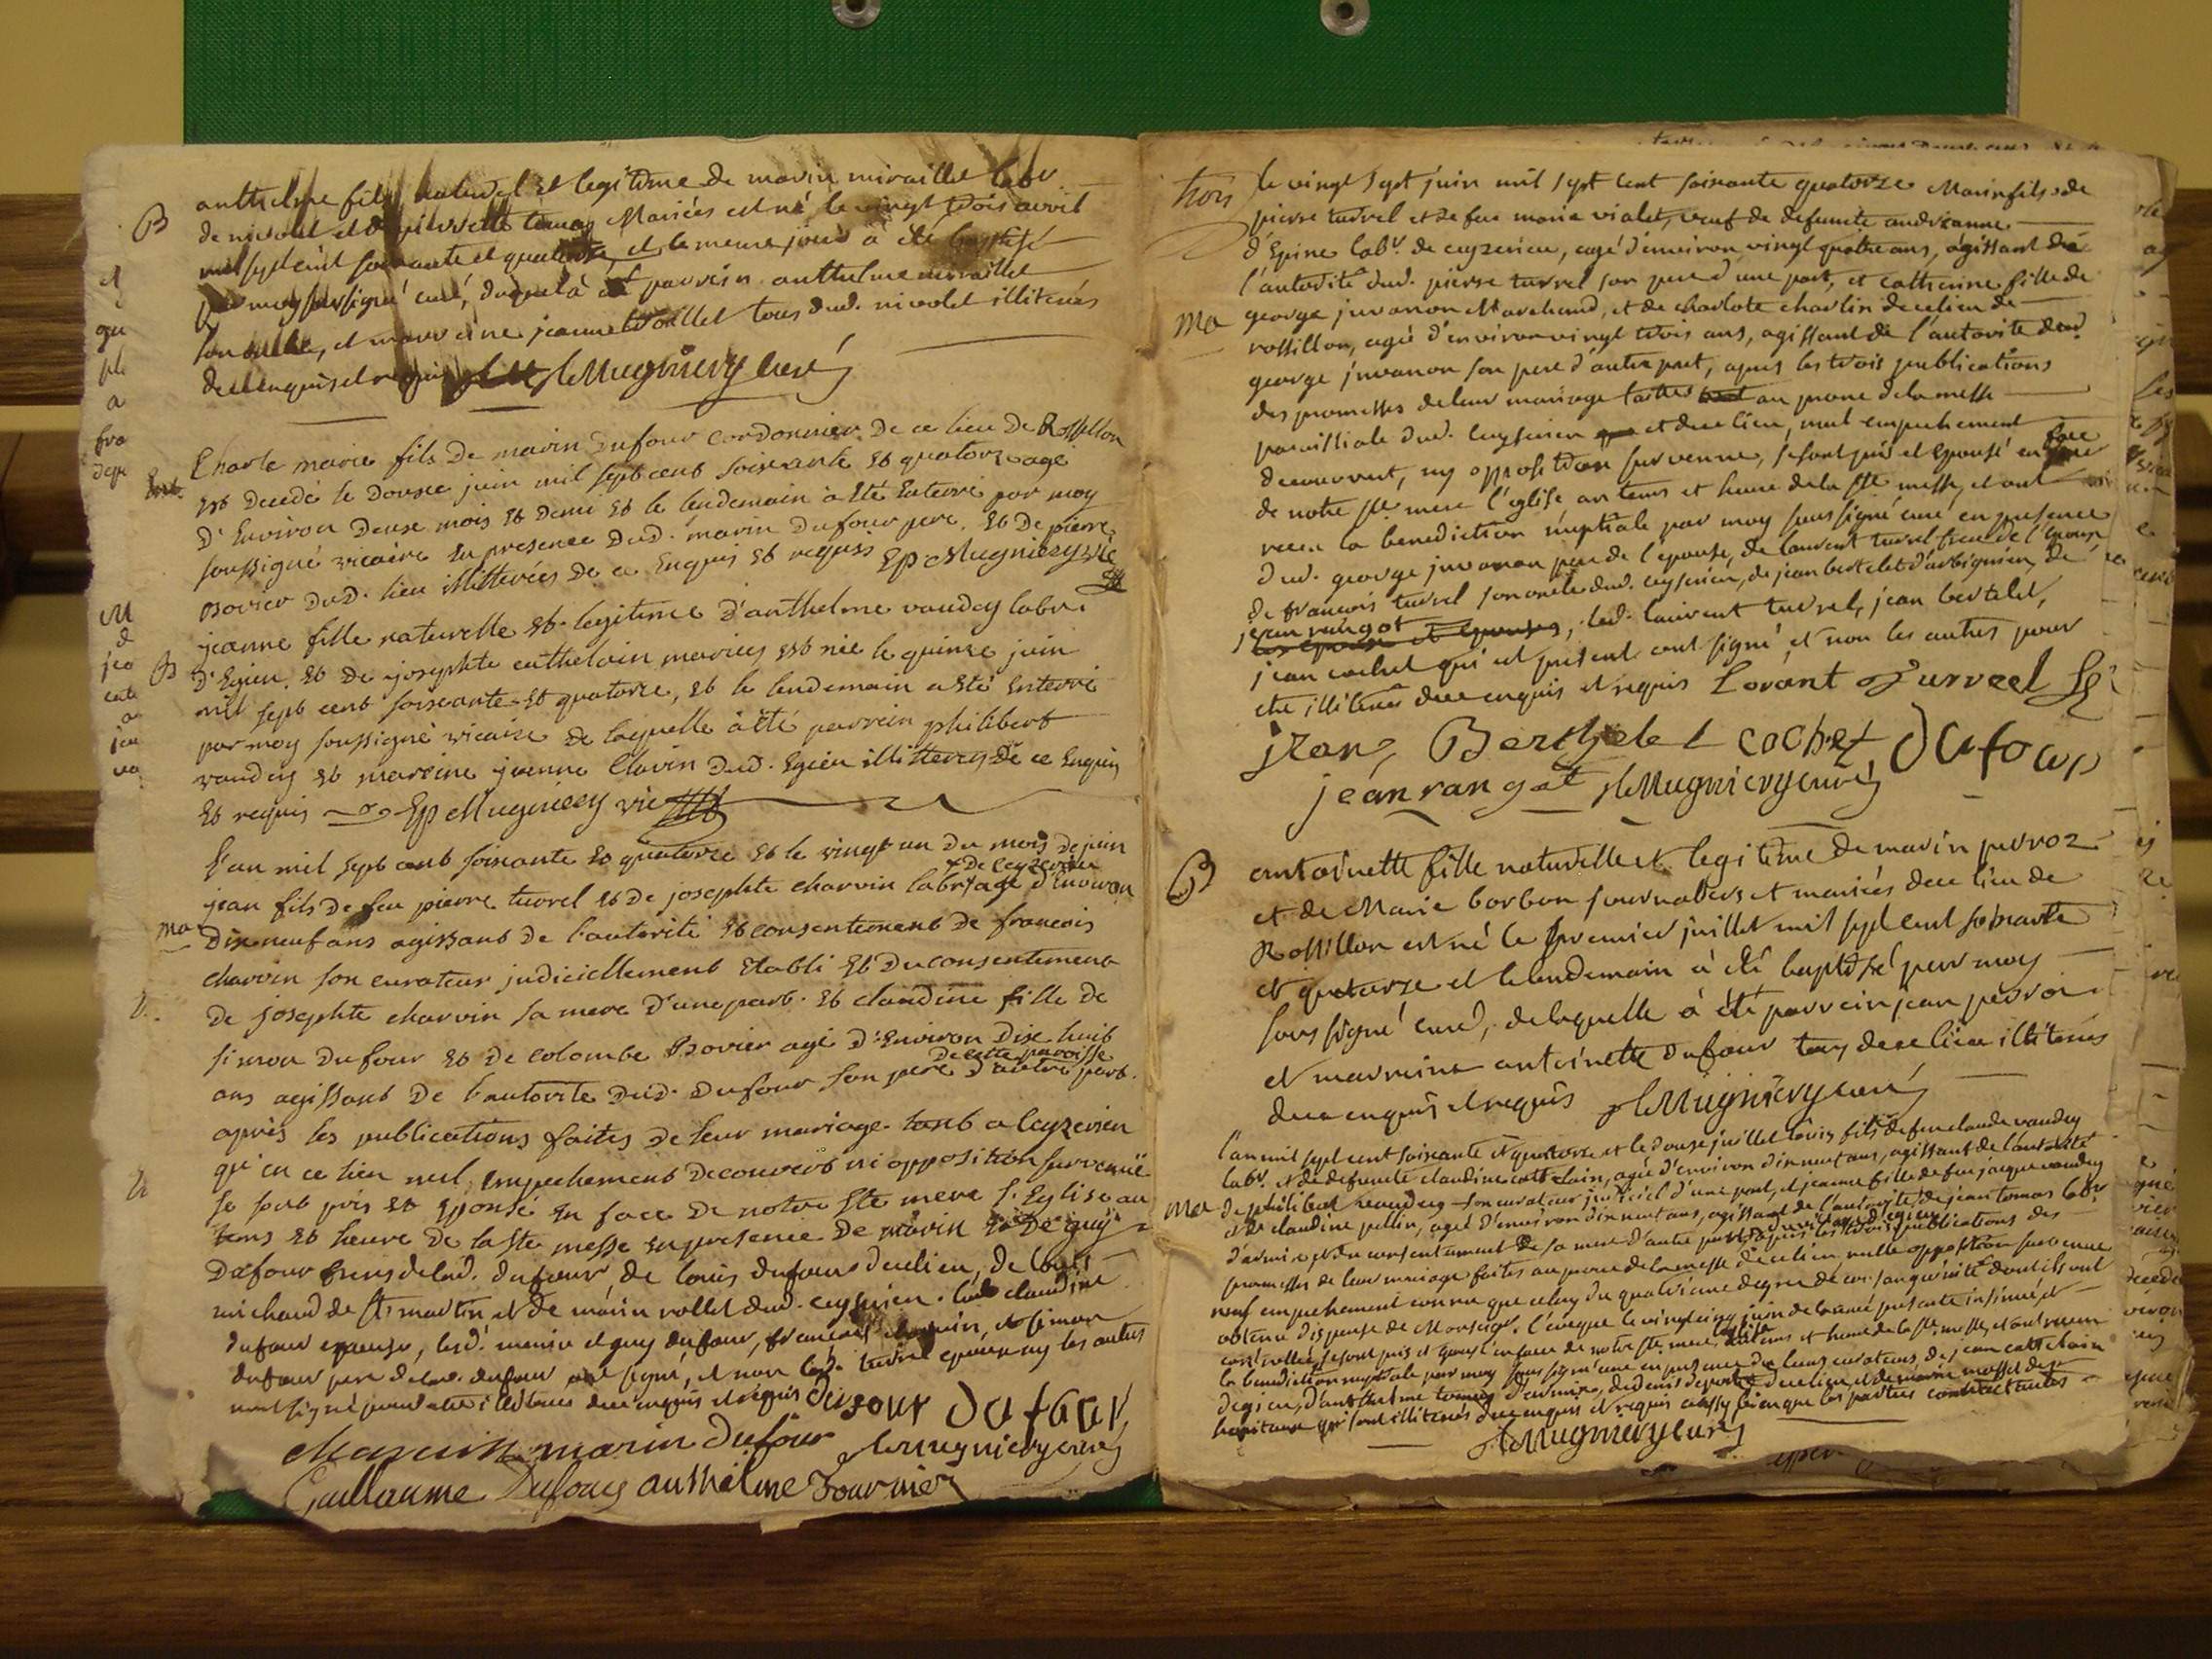 B
anthelme fils naturel et legitime de marin miraillet labr
de nivolet et de pierrette tenas Mariés est né le vingt trois avril
mil sept cent soixante et quatorze, et le meme jour à été baptisé
par moy soussigné curé, duquel à eté parrein anthelme miraillet
son oncle, et marreine jeanne troillet tous dud. nivolet illiterés
de ce enquis et requis Mugniery curé
Charle marie fils de marin dufour cordonnier de ce lieu de Rossillon
Ent. est decedé le douze juin mil sept cent soixante et quatorze agé
d'Environ deuse mois et demi et le lendemain à eté Enterré par moy
soussigné vicaire En presence dud. marin dufour pere, et de pierre
Bovier dud. lieu illitterées de ce Enquis et requis Ep. Mugniery vic
B jeanne fille naturelle et legitime d'anthelme vaudey labr.
d'Egieu, et de josephte catthelain mariés est née le quinze juin
mil sept cent soixante et quatorze, et le lendemain a eté Enterré
par moy soussigné vicaire de laquelle à eté parrein philibert
vaudey et mareine jeanne Clavin dud. Egieu illitterés de ce Enquis
et requis Ep Mugniery vic
L'an mil sept cent soixante et quatorze et le vingt un du mois de juin
x de ceyzerieu
jean fils de feu pierre turrel et de josephte charvin labr x agé d'Environ
ma dix neuf ans agissant de l'autorité et consentement de francois
charvin son curateur judiciellement Etabli et du consentement
de josephte charvin sa mere d'une part. et claudine fille de
simon dufour et de colombe Bovier agé d'Environ dix huit
de cette paroisse
ans agissant de l'autorité dud. dufour son pere d'autre part.
après les publications faites de leur mariage tant a Ceyzerieu
qu'en ce lieu nul Empechement decouvert ni opposition survenüe
se sont pris et Epousé En face de notre Ste mere l'Eglise au
tems et heure de la Ste messe En presence de marin et de guy
Dufour freres de lad. dufour, de louis dufour de ce lieu, de louis
michaud de St martin et de marin rollet dud. ceyserieu. lad. claudine
dufour epouse, lesd. marin et guy dufour, francois charvin, et simon
dufour pere de lad. dufour ont signé, et non led. turrel epoux ny les autres
pour etre illiterés de ce enquis et requis dufour dufour
Charvin marin Dufour Mugniery curé
Guillaume Dufour anthelme Fournier
trois le vingt sept juin mil sept cent soixante quatorze Marin fils de
pierre turrel et de feue marie vialet, veuf de defunte andreanne
d'Epine labr. de ceyzerieu, agé d'environ vingt quatre ans, agissant de
l'autorité dud. pierre turrel son pere d'une part, et catherine fille de
ma george juvanon Marchand, et de charlote charlin de ce lieu de
rossillon, agée d'environ vingt trois ans, agissant de l'autorité dud.
george juvanon son pere d'autre part, apres les trois publications
des promesses de leur mariage faittes au prone de la messe
paroissiale dud. Ceyserieu et de ce lieu, nul empechement
decouvert, ny opposition survenue, se sont pris et epousé en face
de notre Ste mere l'eglise au tems et heure de la Ste messe, et ont
receu la benediction nuptiale par moy soussigné curé en presence
dud. george juvanon pere de l'epouse, de laurent turrel frere de l'epoux
de francois turrel son oncle dud. ceyserieu, de jean bertelet d'arbignieu, de
jean rangot
les epoux et epouses, led. laurent turrel, jean bertelet,
jean cochet qui est present ont signé, et non les autres pour
etre illiterés de ce enquis et requis Lorant Turrel
jean Berthelet cochet Dufour
jean rangot Mugniery curé
B antoinette fille naturelle et legitime de marin perroz
et de Marie borbon journaliers et mariés de ce lieu de
Rossillon est né le premier juillet mil sept cent soixante
et quatorze et le lendemain à eté baptisé par moy
soussigné curé, de laquelle à eté parrein jean perroz
et marreine antoinette dufour tous de ce lieu illiterés
de ce enquis et requis Mugniery curé
l'an mil sept cent soixante et quatorze et le douze juillet louis fils de feu claude vaudey
labr. et de defunte claudine catthelain, agé d'environ dix neuf ans, agissant de l'autorité
ma de philibert vaudey son curateur judiciel d'une part, et jeanne fille de feu jacque vaudey
et de claudine pellin, agé d'environ dix neuf ans, agissant de l'autorité de jean tomas labr
d'armix et du consentement de sa mere d'autre part, apres les trois publications des
promesses de leur mariage faites au prone de la messe de ce lieu nulle opposition survenue
nul empechement connu que celuy du quatrieme degré de consanguinité dont ils ont
obtenu dispense de Monseigr. l'eveque le vingt cinq juin de l'année presente insinuée et
controllée, se sont pris et epousé en face de notre Ste mere l'eglise au tems et heure de la Ste messe, et ont receu
la benediction nuptiale par moy soussigné curé en presence de leurs curateurs, de jean catthelain
d'egieu, d'anthelme tomas d'armix, de denis deporte de ce lieu, et de marin mossel de
qui sont illiterés de ce enquis et requis aussy bien que les parties contractantes
Mugniery curé